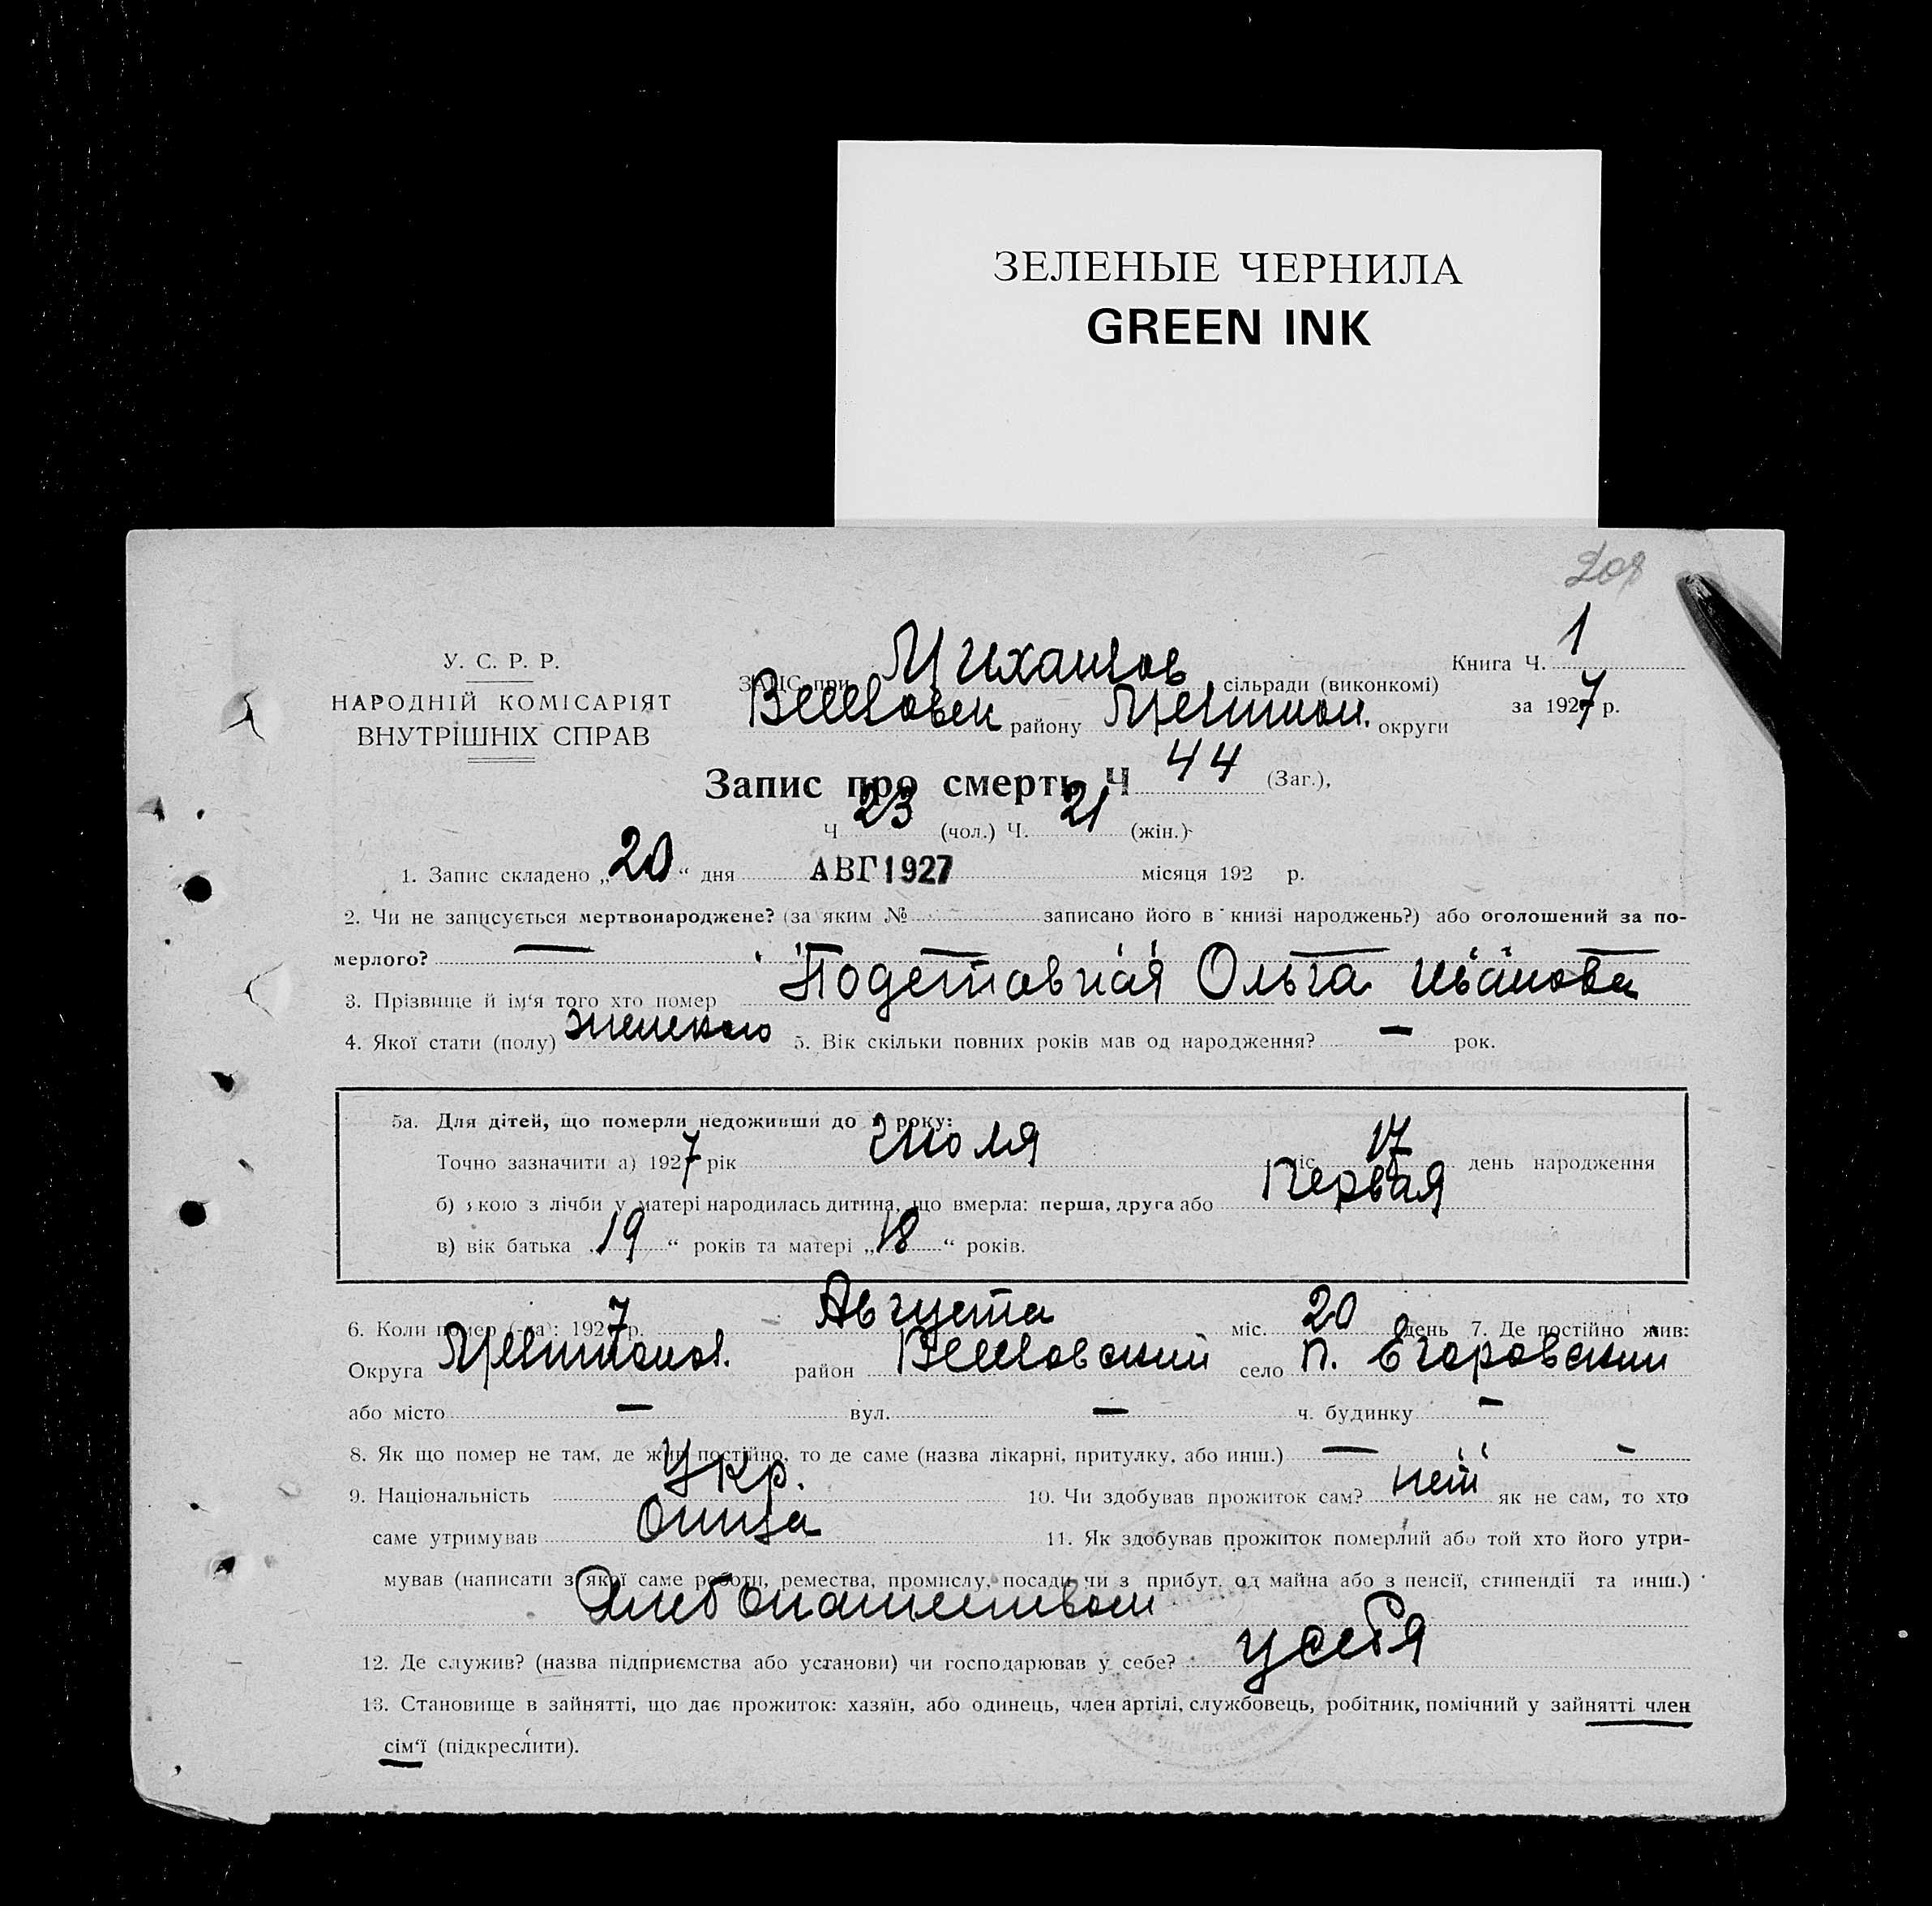 ЗЕЛЕНЫЕ ЧЕРНИЛА
GREEN INK
208
У. С. Р. Р.
НАРОДНІЙ КОМІСАРІЯТ
ВНУТРІШНІХ СПРАВ
ЗАЦС при Михайлов сільради (виконкомі)
Веселовск району Мелитоп. округи
Книга Ч. 1
за 1927 р.
Запис про смерть Ч 44 (Заг.),
Ч 23 (чол.) Ч. 21 (жін.)
1. Запис складено „20“ дня АВГ 1927 місяця 192 р.
2. Чи не записується мертвонароджене? (за яким № записано його в книзі народжень?) або оголошений за по-
мерлого? —
3. Прізвище й ім'я того хто помер Подставная Ольга Иванова
4. Якої стати (полу) женского 5. Вік скільки повних років мав од народження? — рок.
5а. Для дітей, що померли недоживши до 1 року:
Точно зазначити а) 1927 рік Июля міс 17 день народження
б) якою з лічби у матері народилась дитина, що вмерла: перша, друга або Первая
в) вік батька „19“ років та матері „18“ років.
6. Коли помер (-ла): 1927 р. Августа міс. 20 день 7. Де постійно жив:
Округа район Веселовский село п. Егоровский
або місто — вул. — ч. будинку —
8. Як що помер не там, де жив постійно, то де саме (назва лікарні, притулку, або инш.) — —
9. Національність Укр. 10. Чи здобував прожиток сам? нет як не сам, то хто
саме утримував Отца 11. Як здобував прожиток померлий або той хто його утри-
мував (написати з якої саме роботи, ремества, промислу, посади чи з прибут. од майна або з пенсії, стипендії та инш.)
Хлебопашеством
12. Де служив? (назва підприємства або установи) чи господарював у себе? у себя
13. Становище в зайнятті, що дає прожиток: хазяїн, або одинець, член артілі, службовець, робітник, помічний у зайнятті член
сім'ї (підкреслити).